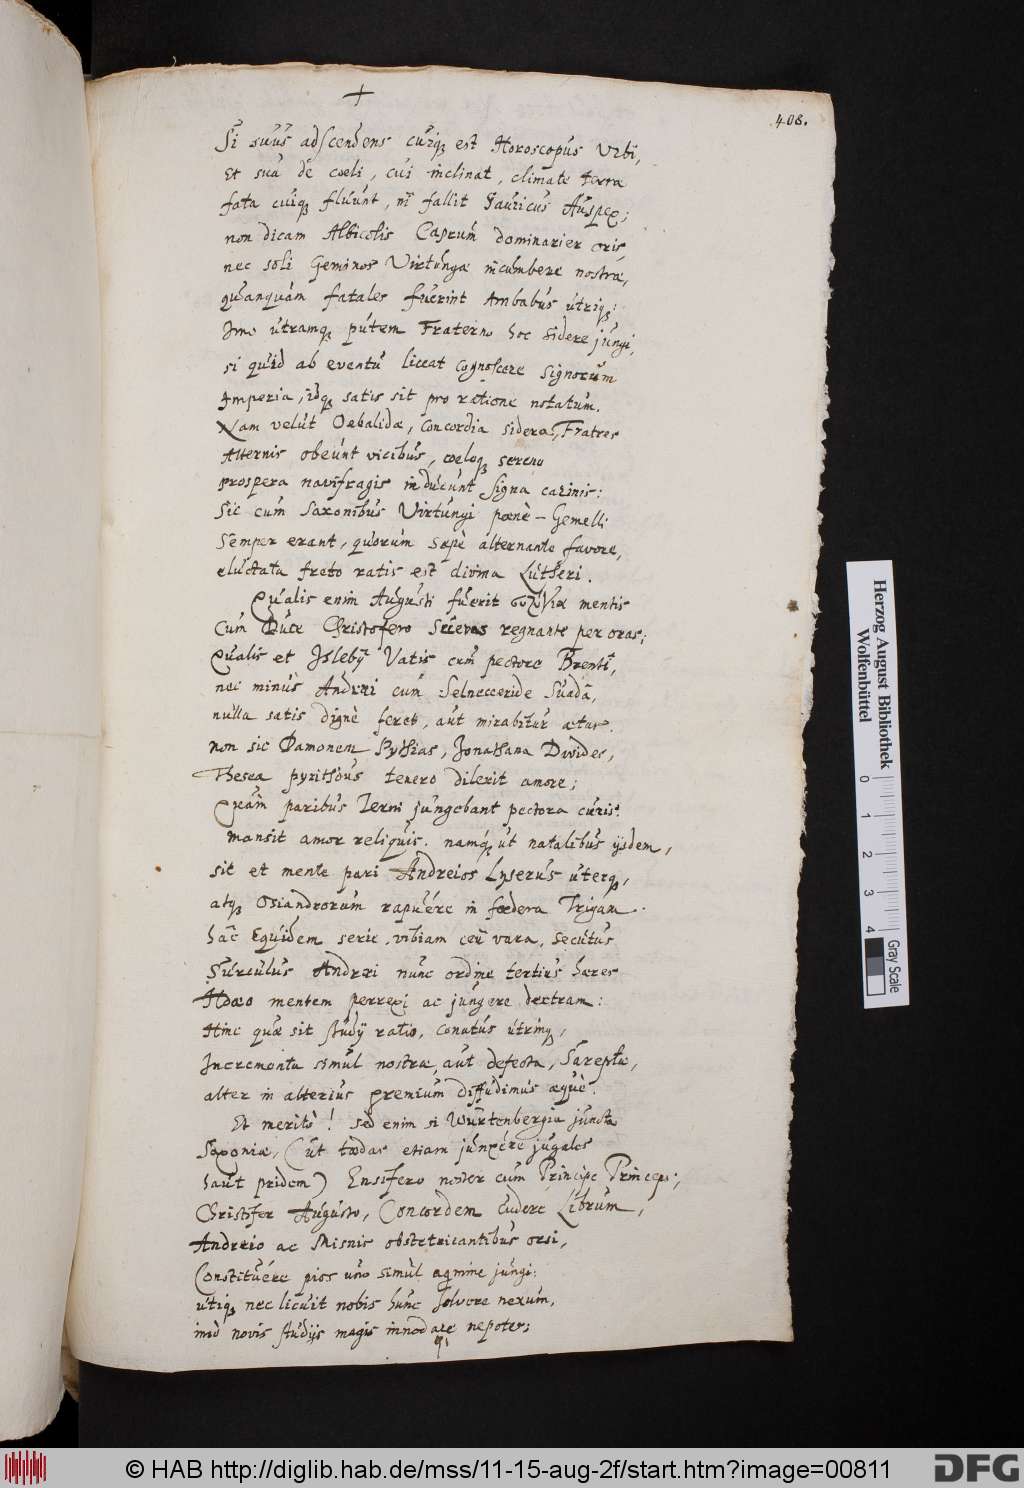 +
408.
Si suus adscendens cuiq; est Horoscopus Urbi,
Et sua de coeli, cui inclinat, climate terra
fata cuiq; fluunt, ni fallit Gauricus Auspex;
non dicam Albicolis Caprum dominarier oris,
nec soli Geminos Virtunga incumbere nostra,
quanquam fatales fuerint Ambabus utriq;:
Imo utramq; putem Fraterno hoc sidere jungi,
si quid ab eventu liceat cognoscere signorum
Imperia, idq; satis sit pro ratione notatum.
Nam velut Oebalidæ, concordia sidera, Fratres
Alternis obeunt vicibus, coeloq; sereno
prospera navifragis inducunt signa carinis:
Sic cum Saxonibus Virtungi pœnè-Gemelli
Semper erant, quorum sæpè alternante favore,
eluctata freto ratis est divina Lutheri.
Qualis enim Augusti fuerit mentis
Cum Duce Christofero Suevas regnante per oras;
Qualis et Islebij Vatis cum pectore Brentî,
nec minus Andreæ cum Selnecceride Suada,
nulla satis dignè feret, aut mirabitur ætas.
non sic Damonem Pythias, Jonathana Davides,
Thesea pyrithous tenero dilexit amore;
Quàm paribus Terni jungebant pectora curis.
mansit amor reliquis. namq; ut natalibus ijsdem,
sic et mente pari Andreios Lyserus uterq;,
atq; Osiandrorum rapuére in fœdera Trigam.
hâc Equidem serie, vibiam ceu vara, secutus
Surculus Andreæ nunc ordine tertius hæres
mentem perrexi ac jungere dextram:
Hinc quæ sit studij ratio, conatus utrinq;,
Incrementa simul nostræ, aut defecta, Sareptæ,
alter in alterius gremium diffudimus æquè.
Et meritò! sed enim si Würtenbergia juncta
Saxoniæ, (ut tædas etiam junxére jugales
haut pridem) Ensifero noster cum Principe Princeps;
Christofer Augusto, Concordem cudere Librum,
Andreio ac Misnis obstetricantibus orsi,
Constituére pios uno simul agmine jungi:
utiq; nec licuit nobis hunc solvere nexum,
imò novis studijs magis innodare nepotes;
Herzog August Bibliothek
Wolfenbüttel
0 1 2 3 4
Gray Scale
© HAB http://diglib.hab.de/mss/11-15-aug-2f/start.htm?image=00811
DFG